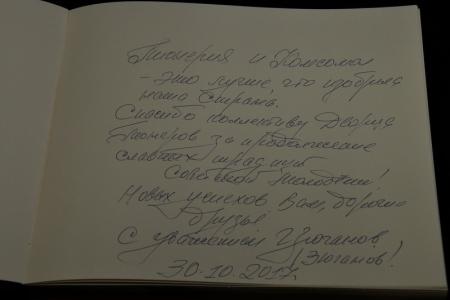 Пионерия и Комсомол
- это лучшее, что изобрела
наша Страна.
Спасибо коллективу Дворца
Пионеров за продолжение
славных традиций
Советской молодежи!
Новых успехов Вам, дорогие
друзья.
С уважением Зюганов
(Зюганов!)
30.10.2017.